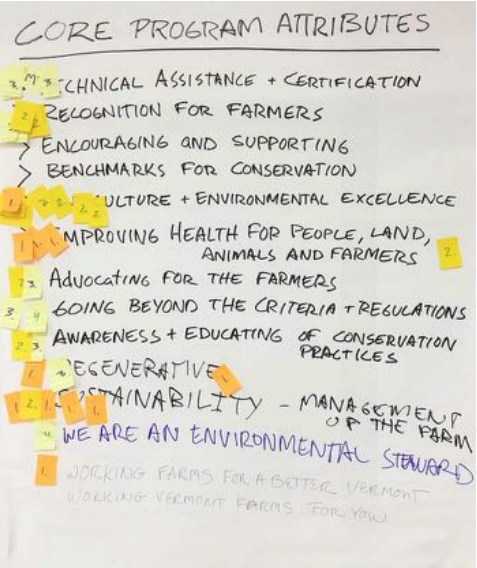 CORE PROGRAM ATTRIBUTES
CHNICAL ASSISTANCE + CERTIFICATION
RECOGNITION FOR FARMERS
> ENCOURAGING AND SUPPORTING
> BENCHMARKS FOR CONSERVATION
ULTURE + ENVIRONMENTAL EXCELLENCE
IMPROVING HEALTH FOR PEOPLE, LAND,
ANIMALS AND FARMERS 2.
ADVOCATING FOR THE FARMERS
3. 4 GOING BEYOND THE CRITERIA + REGULATIONS
2. 3. AWARENESS + EDUCATING OF CONSERVATION
PRACTICES
1. REGENERATIVE 1.
1. 2. 1. 1. STAINABILITY – MANAGEMENT
OF THE FARM
4 WE ARE AN ENVIRONMENTAL STEWARD
1. WORKING FARMS FOR A BETTER VERMONT
WORKING VERMONT FARMS FOR YOU